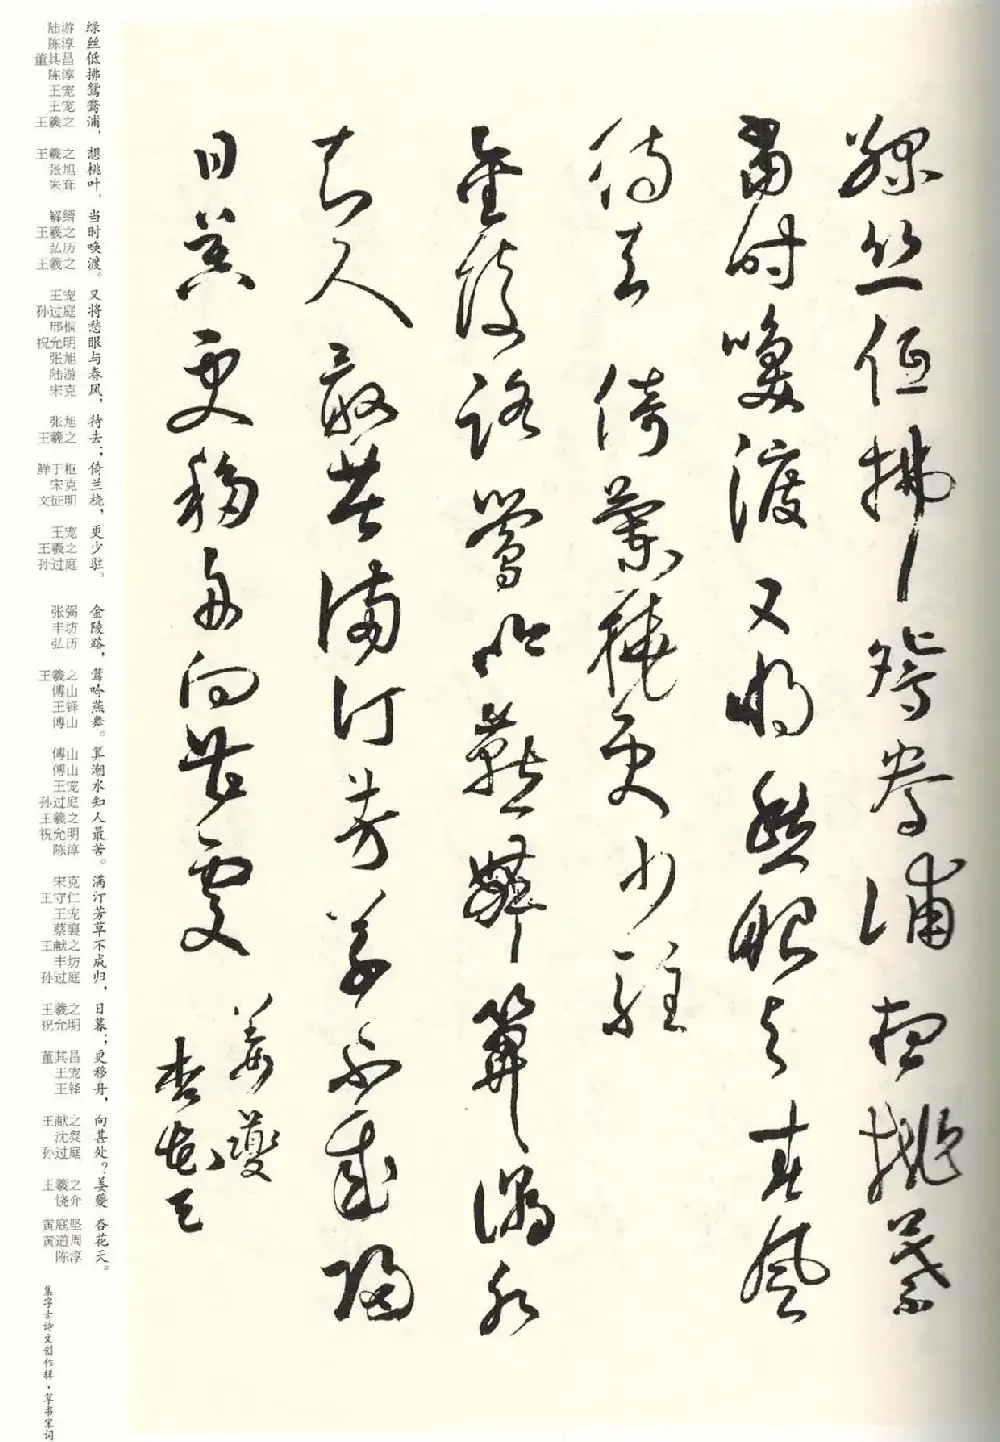 綠絲低拂鴛鴦浦想桃葉
當時喚渡又將愁眼與春風
待去倚蘭橈更少駐
金陵路鶯吟燕舞算潮水
知人最苦滿汀芳草不成歸
日暮更移舟向甚處
姜夔
杏花天
绿丝低拂鸳鸯浦，想桃叶，当时唤渡。又将愁眼与春风，待去；倚兰桡，更少驻。
金陵路，莺吟燕舞。算潮水知人最苦。满汀芳草不成归，日暮；更移舟，向甚处？姜夔
杏花天。
陆游 陈淳 董其昌 陈淳 王宠 王宠 王羲之
王羲之 张旭 朱耷
解缙 王羲之 弘历 王羲之
王宠 孙过庭 邢侗 祝允明 张旭 陆游 宋克
张旭 王羲之
鲜于枢 宋克 文征明
王宠 王羲之 孙过庭
张弼 丰坊 弘历
王羲之 傅山 王铎 傅山
傅山 傅山 王宠 孙过庭 王羲之 祝允明 陈淳
宋克 王守仁 王宠 蔡襄 王献之 丰坊 孙过庭
王羲之 祝允明
董其昌 王宠 王铎
王献之 沈粲 孙过庭
王羲之 饶介
黄庭坚 黄道周 陈淳
集字古诗文创作辑·草书宋词